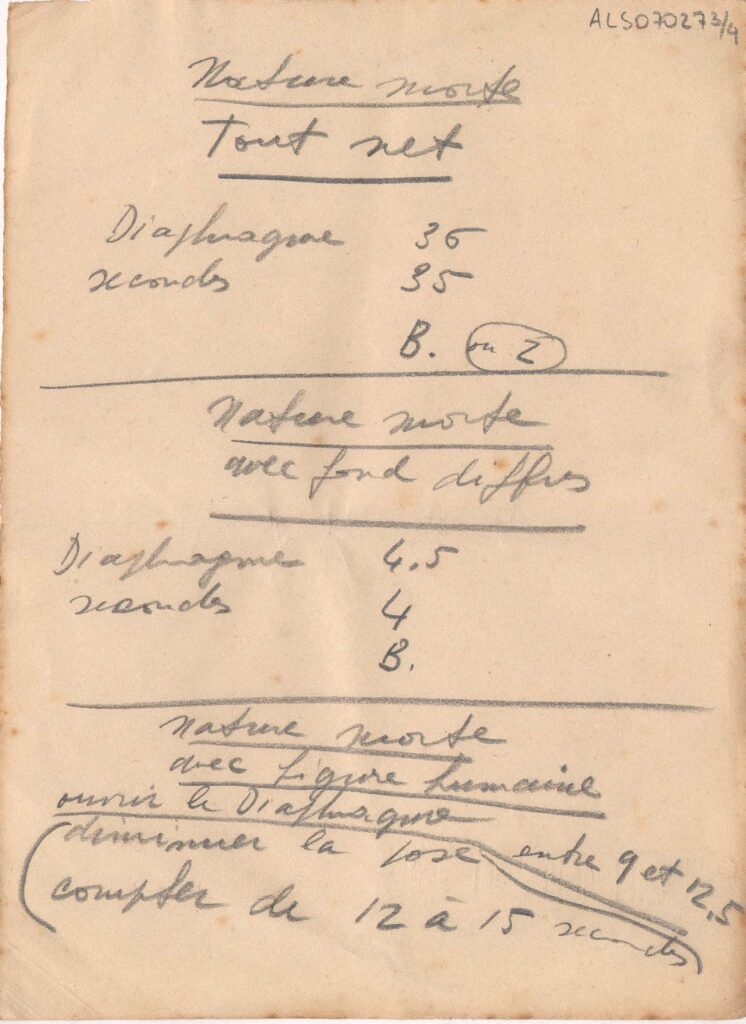 ALS070273/4
Nature morte
Tout net
Diaphragme 36
secondes 35
B. ou Z
Nature morte
avec fond diffus
Diaphragme 4.5
secondes 4
B.
nature morte
avec figure humaine
ouvrir le Diaphragme
diminuer la pose entre 9 et 12,5
compter de 12 à 15 secondes